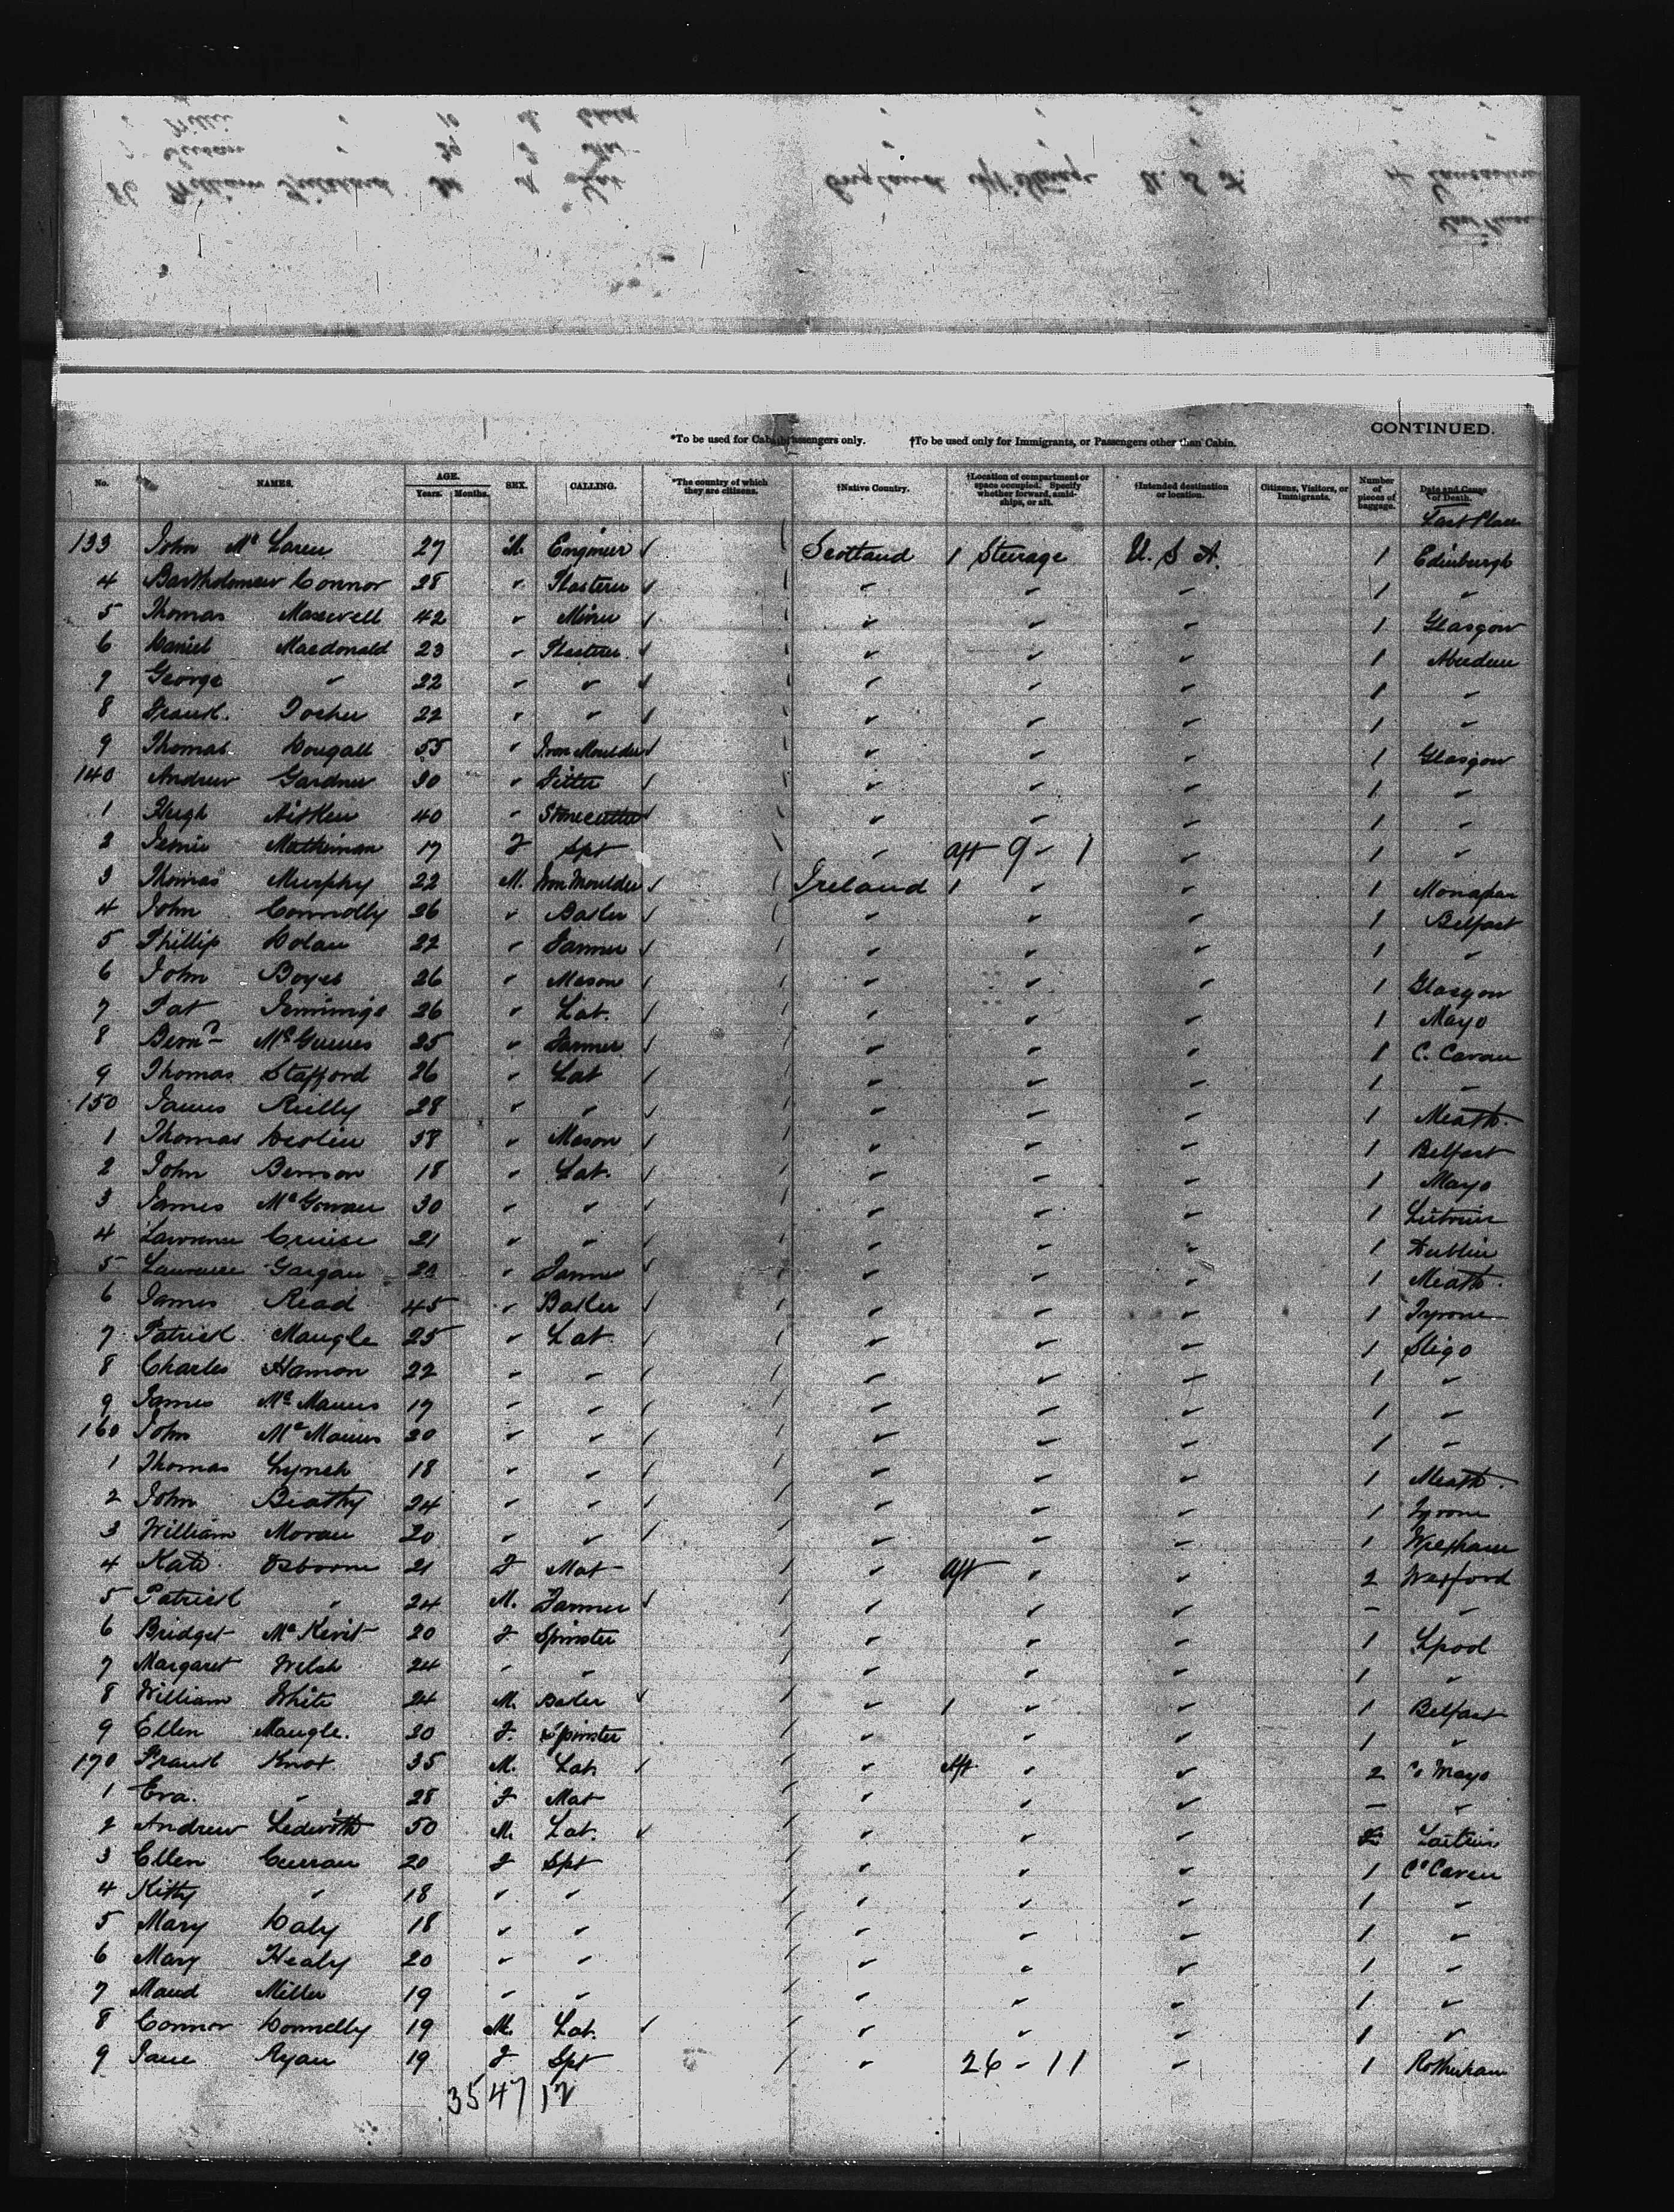 CONTINUED.
*To be used for Cabin Passengers only. †To be used only for Immigrants, or Passengers other than Cabin.
No. NAMES. AGE. Years. Months. SEX. CALLING. *The country of which they are citizens. †Native Country. †Location of compartment or space occupied. Specify whether forward, amidships, or aft. †Intended destination or location. Citizens, Visitors, or Immigrants. Number of pieces of baggage. Date and Cause of Death.
Last Place
133 John Mc Laren 27 M. Engineer Scotland 1 Steerage U. S. A. 1 Edinburgh
4 Bartholomew Connor 28 " Plasterer " " " 1 "
5 Thomas Maxwell 42 " Miner " " " 1 Glasgow
6 Daniel Macdonald 23 " Plasterer " " " 1 Aberdeen
7 George " 22 " " " " " 1 "
8 Frank 22 " " " " " 1 "
9 Thomas Dougall 55 " Iron Moulder " " " 1 Glasgow
140 Andrew Gardner 30 " Fitter " " " 1 "
1 Hugh Aitken 40 " Stonecutter " " " 1 "
2 17 F Spt " aft 9 - 1 " 1 "
3 Thomas Murphy 22 M. Iron Moulder Ireland 1 " " 1 Monaghan
4 John Connolly 26 " " " " 1 Belfast
5 Phillip Dolan 22 " Farmer " " " 1 "
6 John 26 " Mason " " " 1 Glasgow
7 Pat Jennings 26 " Lab. " " " 1 Mayo
8 25 " Farmer " " " 1 C. Cavan
9 Thomas Stafford 26 " Lab " " " 1 "
150 James Reilly 28 " " " " " 1 Meath.
1 Thomas Devlin 38 " Mason " " " 1 Belfast
2 John 18 " Lab. " " " 1 Mayo
3 James Mc Gowan 30 " " " " " 1 Leitrim
4 Lawrence Cruise 21 " " " " " 1 Dublin
5 Lawrence Gargan " Farmer " " " 1 Meath.
6 James Read 45 " " " " 1 Tyrone
7 Patrick Mangle 25 " Lab. " " " 1 Sligo
8 Charles 22 " " " " " 1 "
9 James Mc Manus 19 " " " " " 1 "
160 John Mc Manus 20 " " " " " 1 "
1 Thomas Lynch 18 " " " " " 1 Meath.
2 John Beatty 24 " " " " " 1 Tyrone
3 William Moran 20 " " " " " 1 Wrexham
4 Kate Osborne 21 F Mat " Aft " " 2 Wexford
5 Patrick " 24 M. Farmer " " " - "
6 Bridget Mc Kevit 20 F Spinster " " " 1 Lpool
7 Margaret Welsh 24 " " " " " 1 "
8 William White 24 M. " 1 " " 1 Belfast
9 Ellen Mangle. 20 F. Spinster " " " 1 "
170 Frank Knox 35 M. Lab " Aft " " 2 Co Mayo
1 Eva. " 28 F Mat " " " - "
2 Andrew Ledwith 50 M. Lab. " " " Leitrim
3 Ellen Curran 20 F Spt " " " 1 Co Cavan
4 Kitty " 18 " " " " " 1 "
5 Mary Daly 18 " " " " " 1 "
6 Mary Healy 20 " " " " " 1 "
7 Maud Miller 19 " " " " " 1 "
8 Connor Donnelly 19 M. Lab. " " " 1 "
9 Jane Ryan 19 F Spt " 26 - 11 " 1 Rotherham
35 47 12